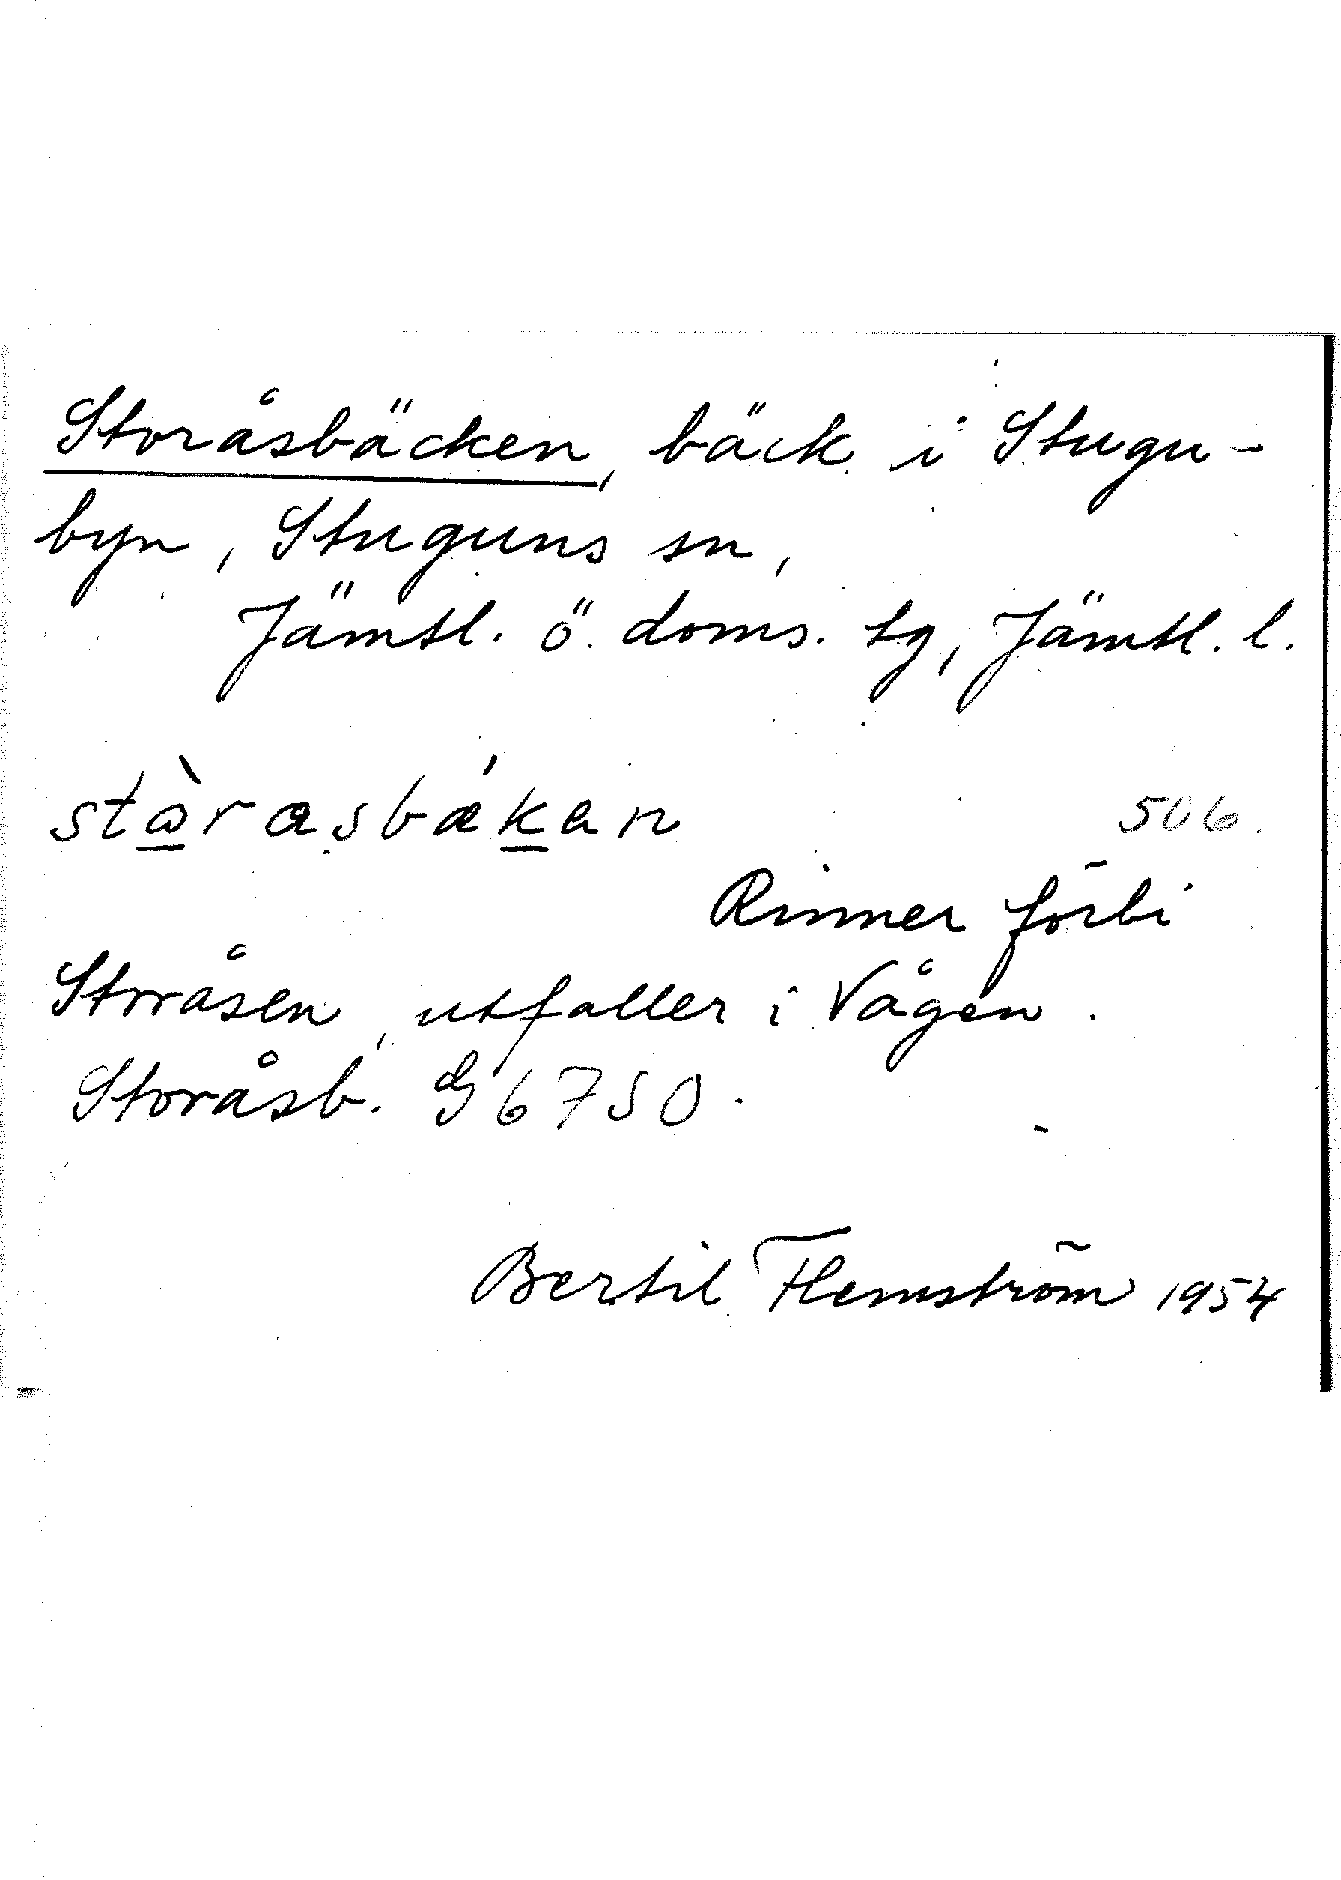 Storåsbäcken, bäck i Stugu-
byn, Stuguns sn,
Jämtl. ö. doms. tg, Jämtl. l.
stὼrasbækan 506.
Rinner förbi
Storåsen, utfaller i Vågen.
Storåsb. G 6750.
Bertil Flemström 1954